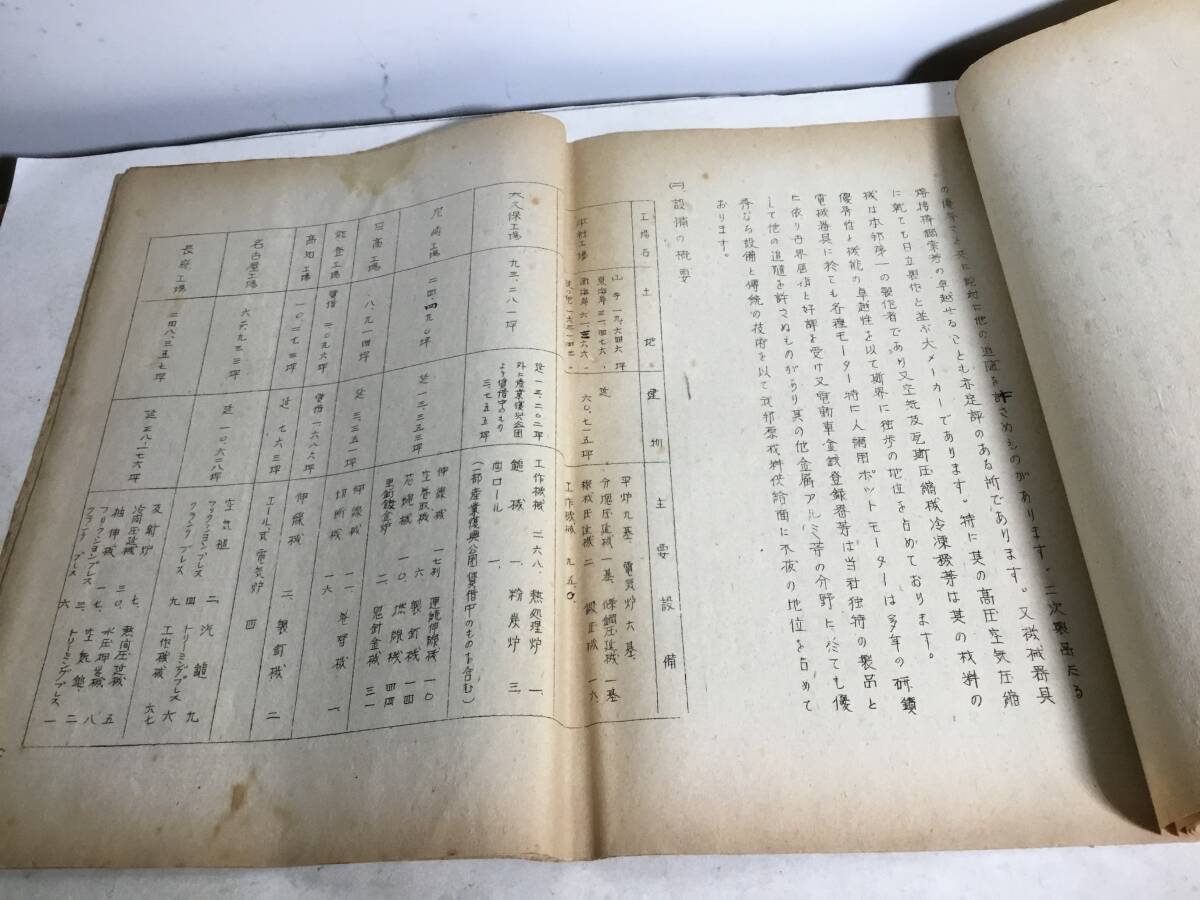 の優秀さと共に絶対に他の追随を許さぬものがあります。二次製品たる
熔接棒鋼索等の卓越せることも亦定評のある所であります。又機械器具
に就ても日立製作と並ぶ大メーカーであります。特に其の高圧空気圧縮
機は本邦唯一の製作者であり又空気及瓦斯圧縮機冷凍機等は其の材料の
優秀性と機能の卓越性を以て斯界に独歩の地位を占めております。
電機器具に於ても各種モーター特に人絹用ポットモーターは多年の研鑽
に依り世界屈指と好評を受け又電動車金銭登録器等は当社独特の製品と
して他の追随を許さぬものがあり其の他金属アルミ等の分野に於ても優
秀なる設備と伝統の技術を以て我邦原材料供給面に不抜の地位を占めて
おります。
㈡ 設備の概要
工場名 土地 建物 主要設備
本社工場 山手 一九、六四六坪
東海岸 三一、四七六〃
延 六〇、七一五坪
平炉 九基 電気炉 六基
分塊圧延機 一基 條鋼圧延機 一基
線材圧延機 二 鍛圧機 一六
工作機械 九五〇
大久保工場 九三、二八一坪
延 一五、二〇二坪
外に産業復興公団
より賃借中のもの
三、七五五坪
工作機械 二六八、熱処理炉 一、
鎚機 一、粉炭炉 三
歯ロール 一、
(一部産業復興公団賃借中のものを含む)
尼崎工場 二四、四九〇坪 延 一三、三五三坪
伸線機 一七列 連続伸線機 一〇
空巻取機 六 製釘機 一四
芯縄機 一〇、撚線機 四四
亜鉛鍍金炉 二、
日高工場 八、九一四坪 延 三、三五一坪
伸線機 一、巻替機 一
切断機 一六
能登工場 賃借 二〇九六坪 賃借 一六八六坪
高知工場 一〇、二七二坪 延 七六三坪
伸線機 二、製釘機 二
エール式電気炉 四
名古屋工場 六六九三三坪 延 一〇、六二八坪
空気鎚 二、汽鎚 九
フリクションプレス 四 トリミングプレス 六
クランクプレス 九 工作機械 六七
長府工場 二四八、三五七坪 延 三八、一七六坪
反射炉 七、熱間圧延機 五
冷間圧延機 三〇、水圧押出機
抽伸機 一七、空気鎚 二
フリクションプレス 三、トリミングプレス 一
クランクプレス 六